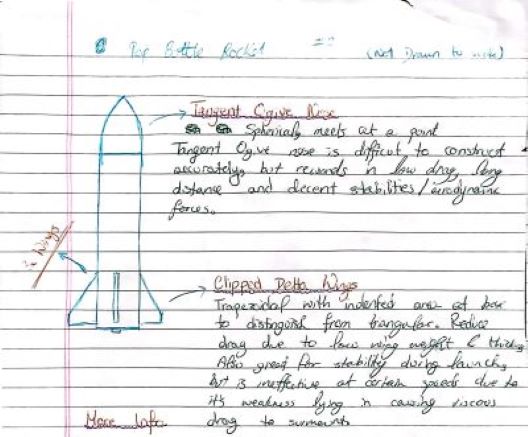 Pop Bottle Rocket
(Not Drawn to scale)
Tangent Ogive Nose
Spherically meets at a point
Tangent Ogive nose is difficult to construct
accurately, but rewards in low drag, long
distance and decent stabilities/aerodynamic
forces.
Wings
Clipped Delta Wings
Trapezoidal with indented area at
to distinguish from triangular. Reduce
drag due to low wing weight &
Also great for stability during launch,
but is ineffective at certain speeds due to
it's weakness lying in causing viscous
drag to
More Info